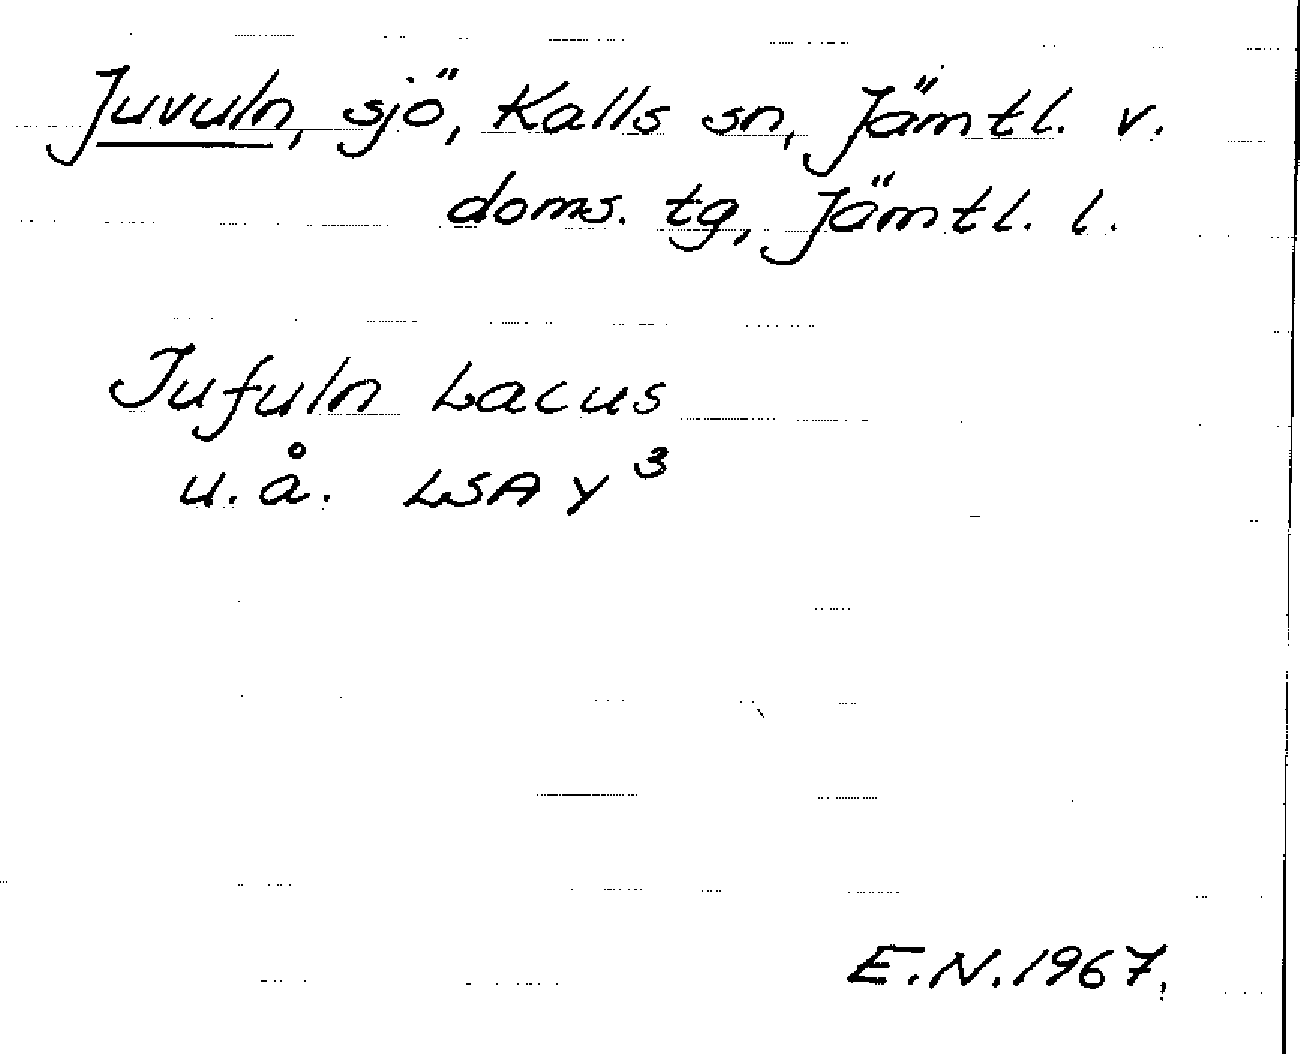 Juvuln, sjö, Kalls sn, Jämtl. v.
doms. tg, Jämtl. l.
Jufuln Lacus
u.å. LSA Y³
E.N. 1967.